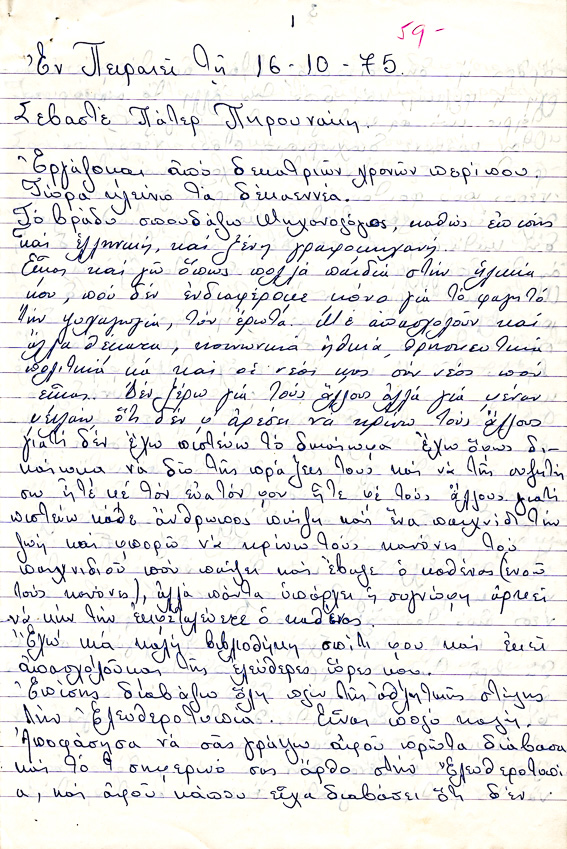 1
59-
Ἐν Πειραιεῖ τῇ 16-10-75.
Σεβαστὲ Πάτερ Πηρουνάκη.
Ἐργάζομαι ἀπὸ δεκατριῶν χρονῶν περίπου.
Τώρα κλείνω τὰ δέκαεννέα.
Τὸ βράδυ σπουδάζω Μηχανολόγος, καθὼς ἐπίσης
καὶ ἑλληνική, καὶ ξένη γραφομηχανή.
Εἶμαι καὶ γὼ ὅπως πολλὰ παιδιὰ στὴν ἡλικία
μου, ποὺ δὲν ἐνδιαφέρομαι μόνο γιὰ τὸ φαγητὸ
τὴν ψυχαγωγία, τὸν ἔρωτα. Μὲ ἀπασχολοῦν καὶ
ἄλλα θέματα, κοινωνικὰ ἠθικά, θρησκευτικὰ
πολιτικὰ κὰ καὶ σὲ νέος μης σὰν νέος ποὺ
εἶμαι. Δὲν ξέρω γιὰ τοὺς ἄλλους ἀλλὰ γιὰ μέναν
ὅτι δὲν μ ἀρέσει νὰ κρίνω τοὺς ἄλλους
γιατὶ δὲν ἔχω πιστεύω τὸ δικαίωμα ἔχω ὅμως δι-
καίωμα νὰ δῶ τῆς πράξεις τους καὶ νὰ τῆς συζητή
σω ἤτε μὲ τὸν εὐατόν μου ἤτε μὲ τοὺς ἄλλους γιατὶ
πιστεύω κάθε ἄνθρωπος παίζη καὶ ἕνα παιχνίδι τὴν
ζωὴ καὶ μπορῶ νὰ κρίνω τοὺς κανόνες τοῦ
παιχνιδιοῦ ποὺ παίζει καὶ ἔβαλε ὁ καθένας (ἐννοῶ
τοὺς κανόνες), ἀλλὰ πάντα ὑπάρχει ἡ συγνώμη ἀρκεῖ
νὰ μὴν τὴν ἐκμεταλεύεται ὁ καθένας.
Ἔχω μιὰ καλὴ βιβλιοθήκη σπίτι μου καὶ ἐκεῖ
ἀπασχολοῦμαι τῆς ἐλεύθερες ὧρες μου.
Ἐπίσης διαβάζω ὅλη πλὴν τῆς ἀθλητικῆς στήλης
τὴν Ἐλευθεροτυπία. Εἶναι πολὺ καλή.
Ἀποφάσησα νὰ σᾶς γράψω ἀφοῦ πρῶτα διάβασα
καὶ τὸ σημερινό σας ἄρθο στὴν Ἐλευθεροτυπί
α, καὶ ἀφοῦ κάπου εἶχα διαβάσει ὅτι δὲν